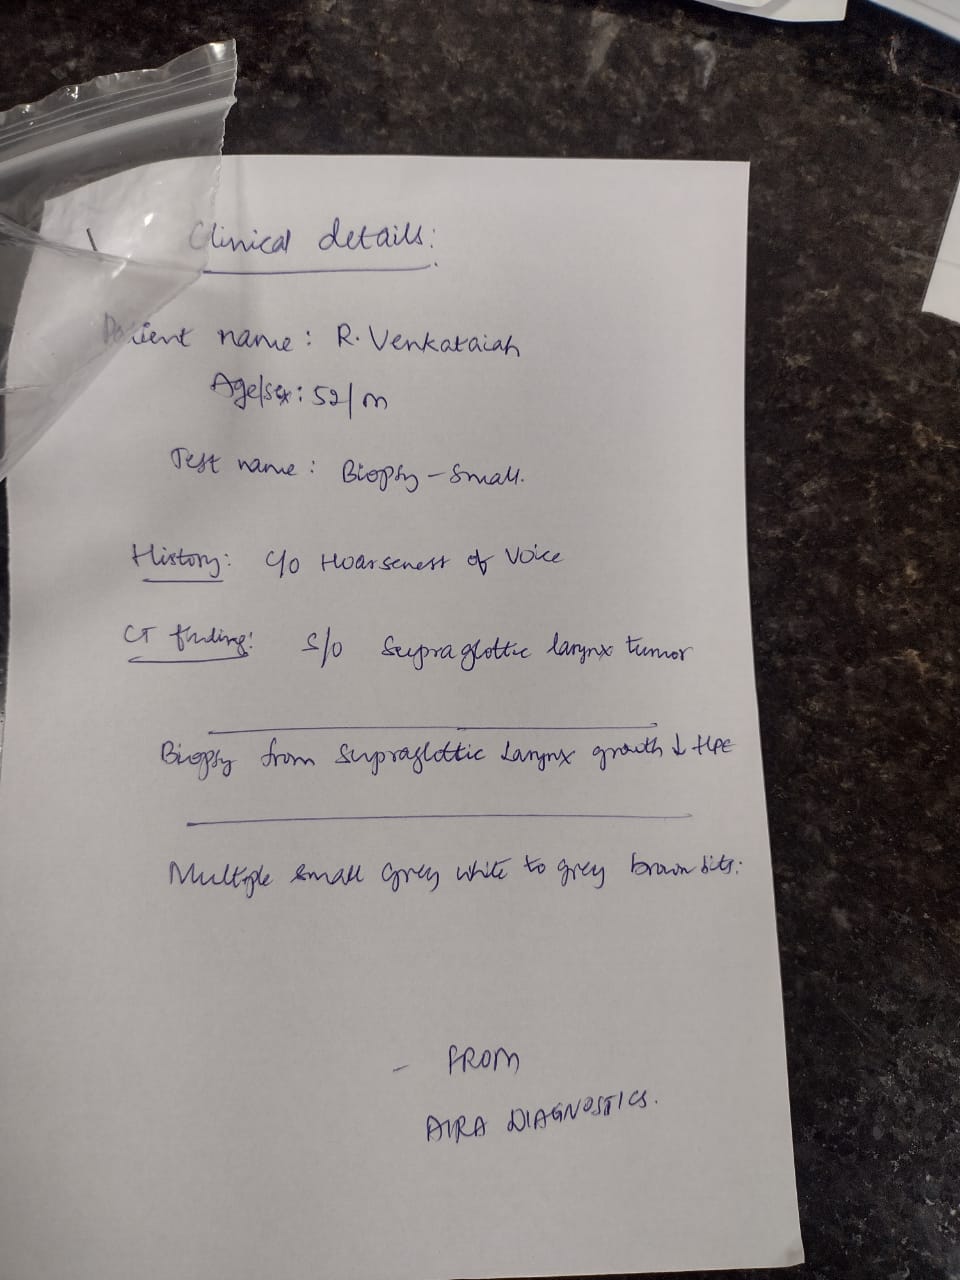 Clinical details:
Patient name: R. Venkataiah
Age/sex: 52/m
Test name: Biopsy - Small.
History: c/o Hoarseness of Voice
CT finding: s/o Supraglottic larynx tumor
Biopsy from Supraglottic Larynx growth ↓ HPE
Multiple small grey white to grey brown bits.
- FROM
AIRA DIAGNOSTICS.